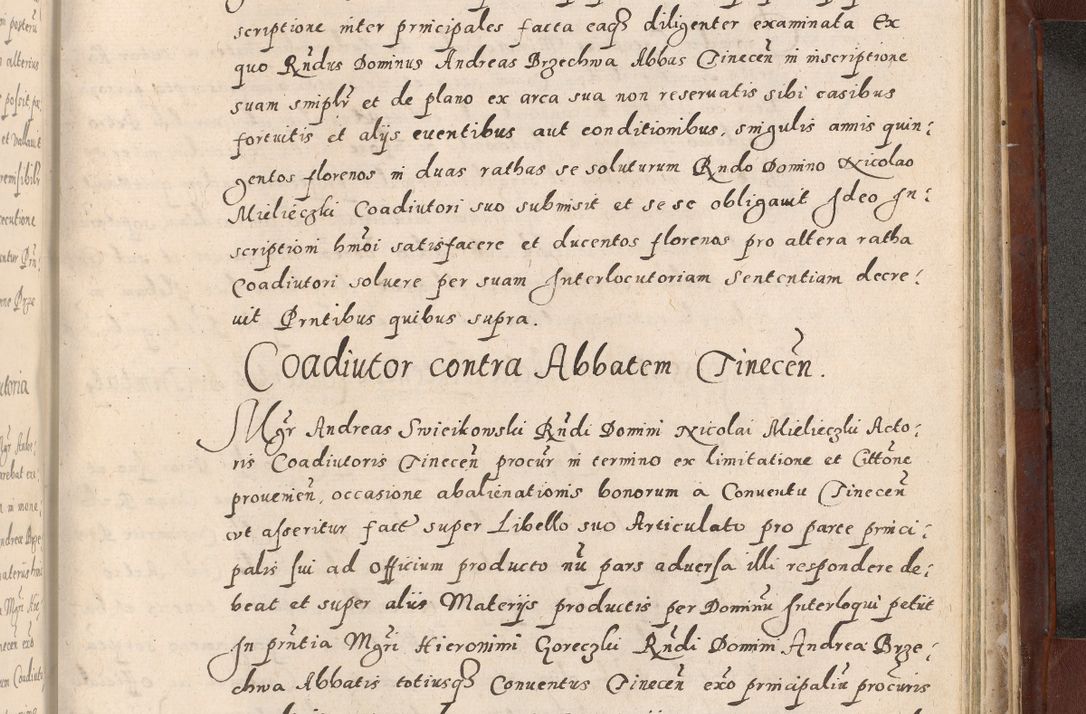 scriptione inter principales facta eaq3 diligenter examinata Ex
quo Rndus Dominus Andreas Brzechwa Abbas Tinecen in inscriptione
suam simplr et de plano ex arca sua non reservatis sibi casibus
fortuitis et alijs eventibus aut conditionibus, singulis annis quin:
gentos florenos in duas rathas se soluturum Rndo Domino Nicolao
Mielieczki Coadiutori suo submisit et se se obligauit Ideo In:
scriptioni hmoi satisfacere et ducentos florenos pro altera ratha
Coadiutori solvere per suam Interlocutoriam Sententiam decre:
uit Prntibus quibus supra.
Coadiutor contra Abbatem Tinecen.
Mgr Andreas Swieikowski Rndi Domini Nicolai Mielieczki Acto:
ris Coadiutoris Tinecen procur in termino ex limitatione et Cittone
provenien, occasione abalienationis bonorum a Conventu Tinecen
vt asseritur fact super Libello suo Articulato pro parte princi:
palis sui ad Officium producto nu pars adversa illi respondere de:
beat et super aliis Materijs productis per Dominu Interloqui petut
In prntia Mgri Hieronimi Goreczki Rndi Domini Andrea Brze:
chwa Abbatis totiusq3 Conventus Tinecen exo principaliu procuris